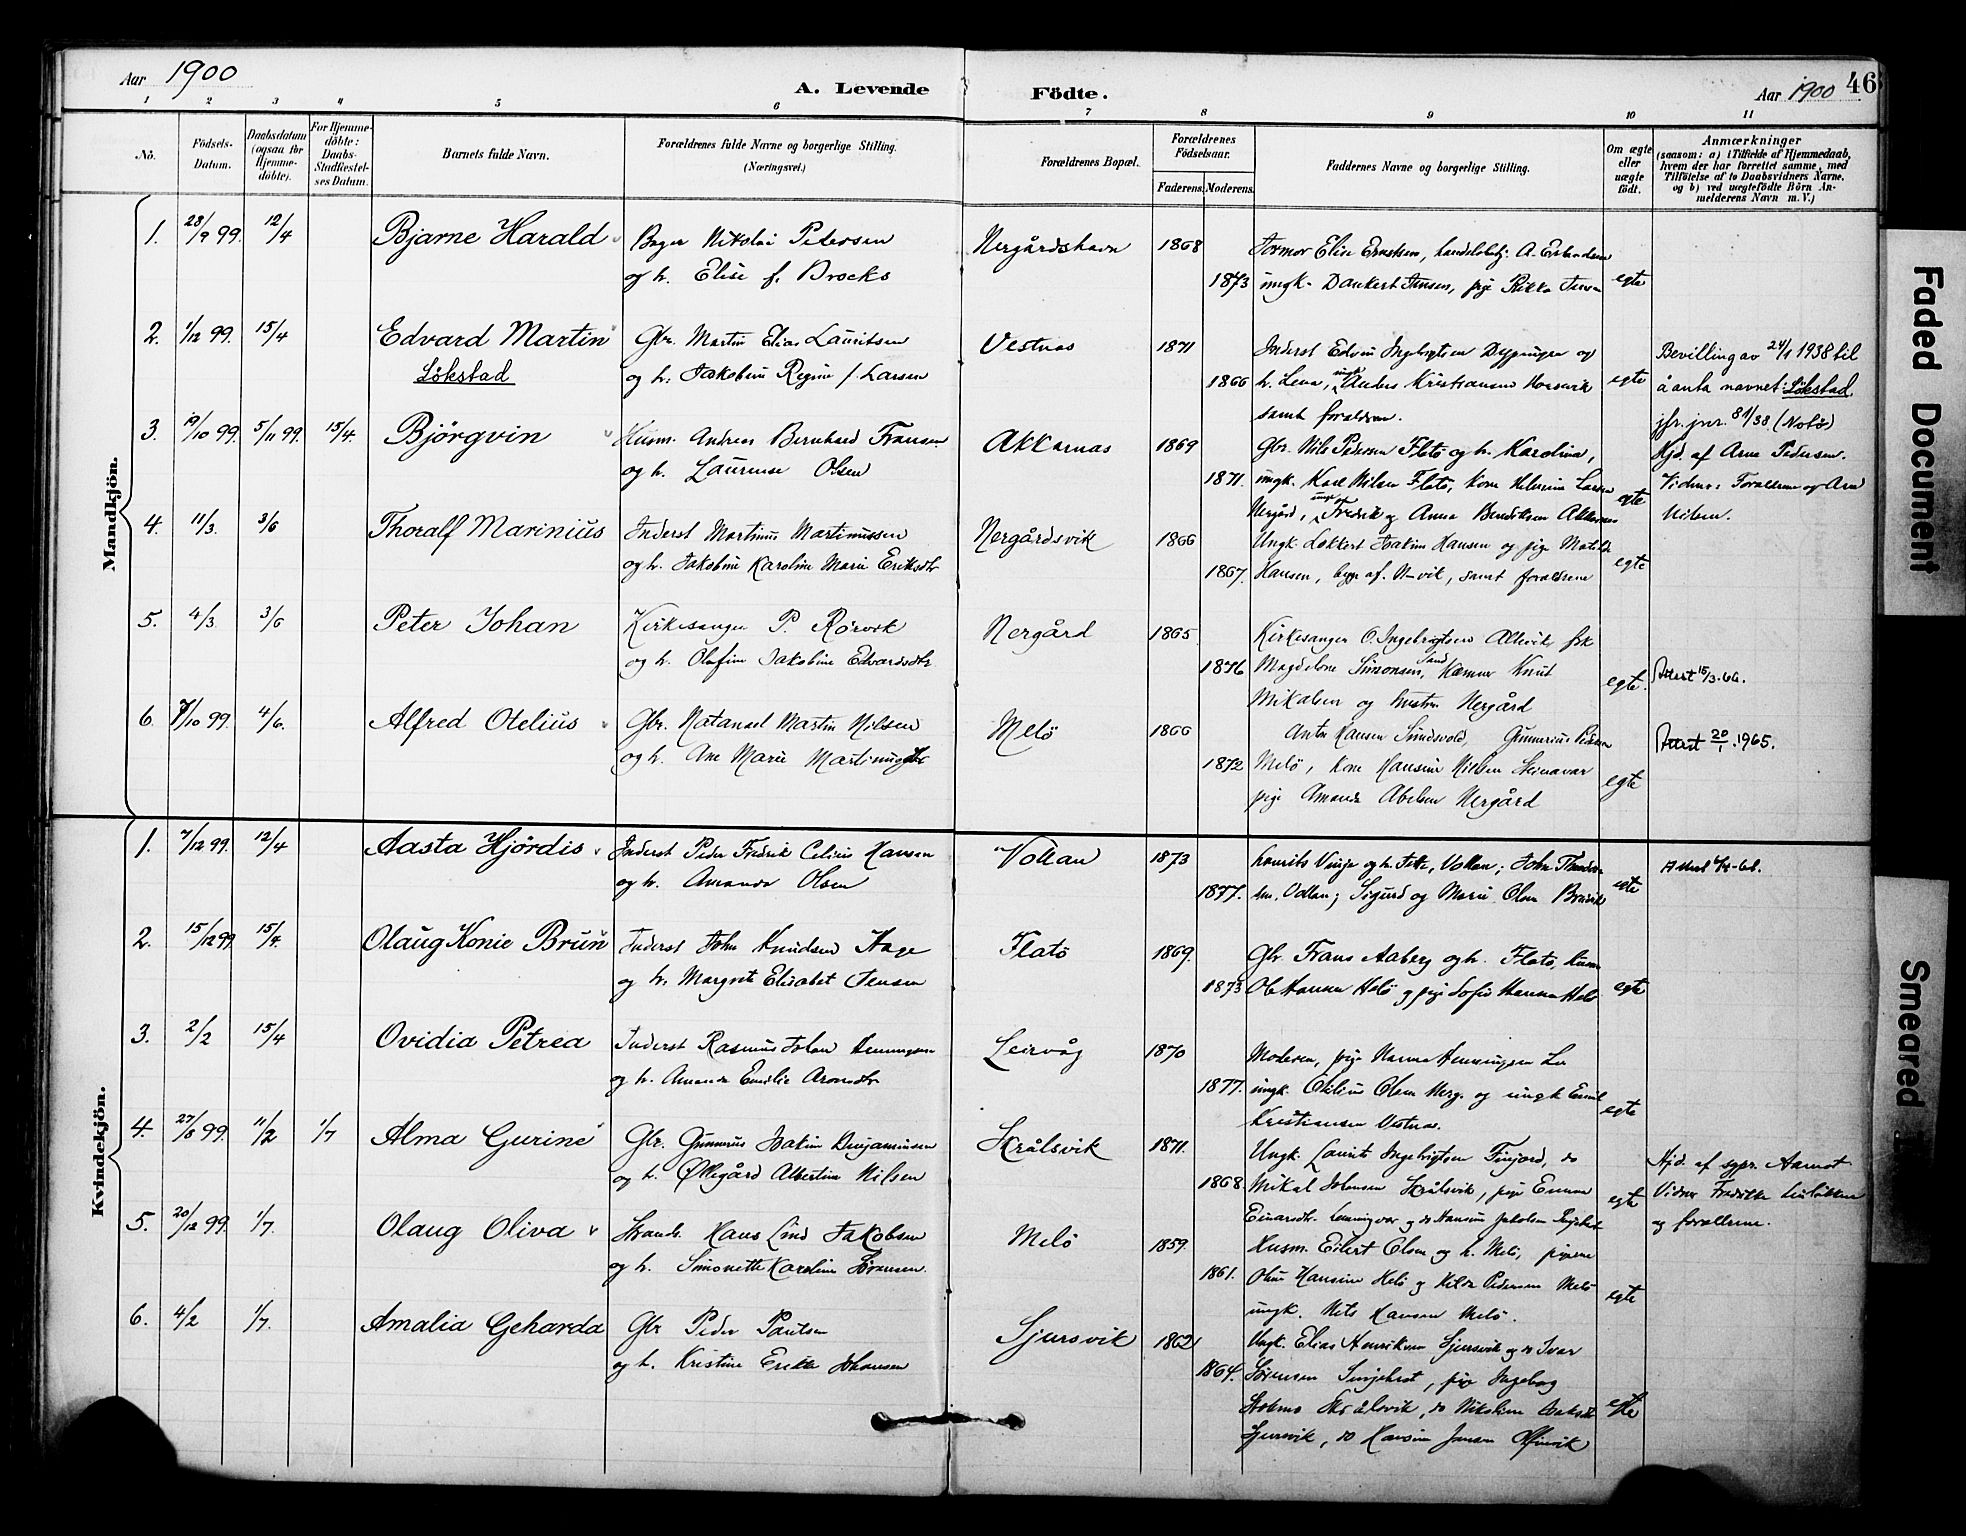 Aar 1900
A. Levende Födte.
Aar 1900 46
1 2 3 4 5 6 7 8 9 10 11
No.
Födsels-Datum.
Daabsdatum (ogsaa for Hjemmedöbte).
For Hjemmedöbte: Daabs-Stadfæstelses Datum.
Barnets fulde Navn.
Forældrenes fulde Navne og borgerlige Stilling. (Næringsvei.)
Forældrenes Bopæl.
Forældrenes Födselsaar.
Faderens. Moderens.
Faddernes Navne og borgerlige Stilling.
Om ægte eller uægte födt.
Anmærkninger
(saasom: a) i Tilfælde af Hjemmedaab, hvem der har forrettet samme, med Tilföielse af to Daabsvidners Navne, og b) ved uægtefödte Börn Anmelderens Navn m. V.)
Mandkjön.
1. 28/9 99. 12/4 Bjarne Harald Bager Nikolai Petersen Nergårdshavn 1868
og h. Elise f. Brocks 1873 egte
Formor Elise Ernstsen, handelsbetj. A.
ungk. Dankert Jensen, pige Rikka Jensen
2. 1/12 99. 15/4 Edvard Martin Gbr. Martin Elias Lauritsen Vestnes 1871
Lökstad og h. Jakobine Regine f. Larsen 1866 egte
Inderst Edvin Ingebrigtsen Dypingen og
h. Lena, ungk. Anders Kristiansen
samt forældrene.
Bevilling av 24/1 1938 til
å anta navnet: Lökstad.
jfr. jnr. 81/38 (Notö)
3. 19/10 99. 5/11 99. 15/4. Björgvin Husm. Andreas Bernhard Fransen Akkarnas 1869
og h. Laurense Olsen 1871. egte
Gbr. Nils Pedersen Flatö og h. Karolina,
ungk. Karl Nilsen Flatö, Kone Helmina Larsen
Nergård, ungk. Fredrik og Anna Bendiksen Akkarnes
Hjd. af Arne Pedersen.
Vidner: Forældrene og
Nilsen.
4. 11/3. 3/6 Thoralf Marinius Inderst Martinus Martinussen Nergårdsvik 1866
og h. Jakobine Karoline Marie Eriksdtr. 1867. egte
Ungk. Lokkert Joakim Hansen og pige Matilde
Hansen, begge af N-vik, samt forældrene
5. 4/3. 3/6 Peter Johan Kirkesanger P. Rörvik Nergård 1865
og h. Olufine Jakobine Edvardsdtr. 1876 egte.
Kirkesanger O. Ingebrigtsen Altevik, frk
Magdelone Simonsen, Sand, Kæmner Knut
Mikalsen og hustru Nergård
Attest 15/3-66.
6. 7/10 99. 4/6. Alfred Otelius Gbr. Natanael Martin Nilsen Melö 1866
og h. Ane Marie Martinusdtr. 1872 egte
Anton Hansen Sundsvold, Gunnerius Pedersen
Melö, Kone Hansine Nilsen Steinavær
pige Amanda Abelsen Nergård
Attest 20/1 1965.
Kvindekjön.
1. 7/12 99. 12/4 Aasta Hjördis Inderst Peder Fredrik Celius Hansen Vollan 1873
og h. Amanda Olsen 1877. egte
Laurits Vinje og h. Jette, Vollan; John
Vollan; Sigurd og Marie Olsen Breivik
Attest
2. 15/12 99 15/4. Olaug Konie Brun Inderst John Knudsen Hage Flatö 1869.
og h. Margrete Elisabet Jensen 1873 egte
Gbr. Frans Aaberg og h. Flatö, Husm
Ole Hansen Melö og pige Sofie Hansen Melö
3. 2/2 15/4 Ovidia Petrea Inderst Rasmus Johan Henningsen Leirvåg 1870
og h. Amanda Emilie Aronsdtr. 1877. egte
Moderen, pige Hanna Henningsen
ungk. Otilius Olsen Nerg. og ungk Emil
Kristiansen Vestnes.
4. 27/8 99. 11/2 1/7 Alma Gurine Gbr. Gunnerus Joakim Benjaminsen Skrålsvik 1871.
og h. Øllegård Albertine Nilsen 1868. egte
Ungk. Laurits Ingebrigtsen Finjord, do
Mikal Johansen Skrålsvik, pige Emma
Einarsdtr. Lemmingvær og do Hansine Jakobsen
Hjd. af sgpr. Aamot
Vidner Fredrikke
og forældrene.
5. 20/12 99. 1/7. Olaug Oliva Strands. Hans Lind Jakobsen Melö 1859.
og h. Simonette Karoline Sörensen. 1861. egte
Husm. Eilert Olsen og h. Melö, pigerne
Oline Hansine Melö og Hilda Pedersen Melö
ungk. Nils Hansen Melö.
6. 4/2 1/7. Amalia Geharda Gbr Peder Paulsen Sjursvik 1862
og h. Kristine Erikke Johansen 1864. egte
Ungk. Elias Henriksen Sjursvik og do Ivar
Sörensen, pige Ingeborg
Skrålsvik, do Nikoline
Sjursvik, do Hansine Jensen
Faded Document
Smeared